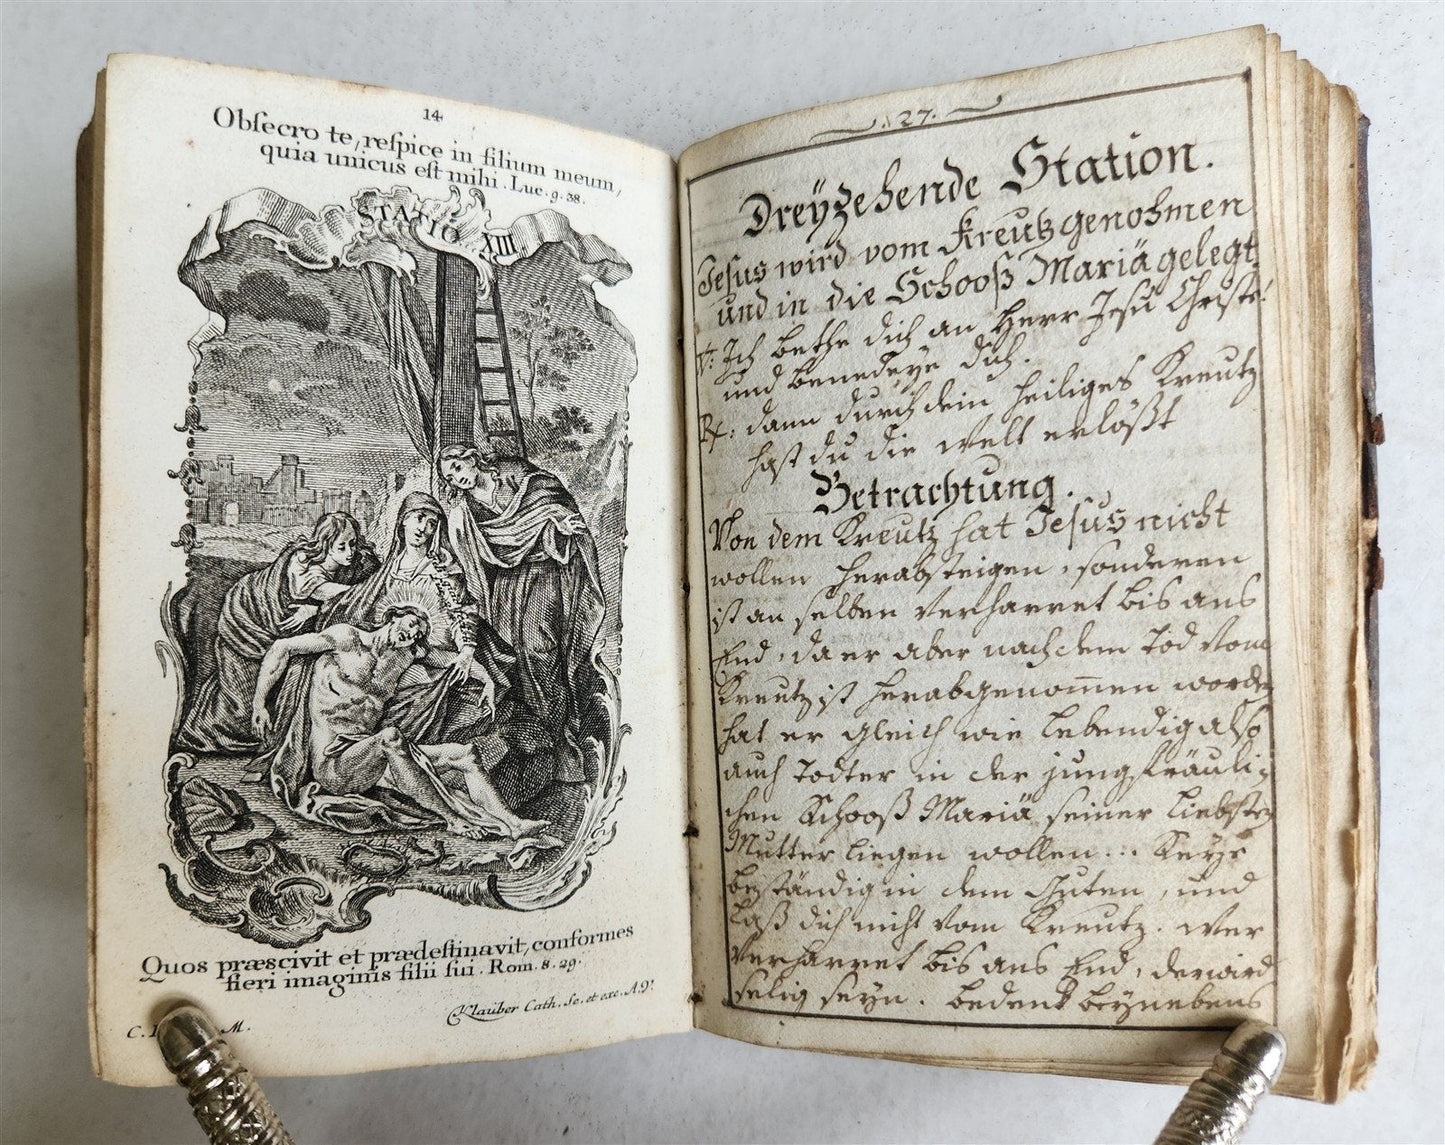 14
Obſecro te, reſpice in filium meum,
quia unicus eſt mihi. Luc. 9. 38.
STATIO XIII.
Quos præscivit et prædeſtinavit, conformes
fieri imaginis filii ſui. Rom. 8. 29.
Klauber Cath. Sc. et exc. A.V.
C. M.
27.
Dreÿzehende Station.
Jeſus wird vom Kreutz genohmen
und in die Schooß Mariä gelegt
V: Ich bethe dich an Herr Jesu Christe!
und benedeye dich.
R: dann durch dein heiliges Kreutz
hast du die Welt erlößt
Betrachtung.
Von dem Kreutz hat Jeſus nicht
wollen herabsteigen, sonderen
ist an selben verharret bis ans
End, da er aber nach dem Tod vom
Kreutz ist herabgenom̄en worde
hat er gleich wie lebendig also
auch todter in der jungfräuli-
chen Schooß Mariä seiner liebste
Mutter liegen wollen... Seye
beständig in dem Guten, und
laß dich nicht vom Kreutz. Wer
verharret bis ans End, der wird
selig seyn. bedenk beynebens